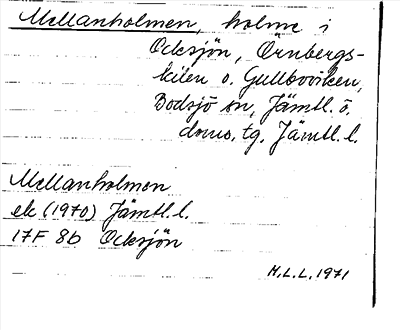 Mellanholmen, holme i
Ocksjön, Örnbergs-
kilen o. Gullboviken,
Bodsjö sn, Jämtl. ö.
doms. tg. Jämtl. l.
Mellanholmen
ek (1970) Jämtl. l.
17F 8b Ocksjön
H.L.L. 1971